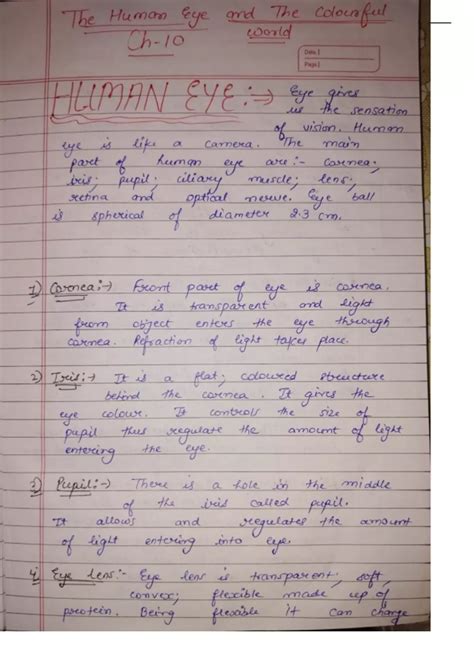 The Human Eye and The Colourful
Ch-10 world
Date
Page
HUMAN EYE:→ Eye gives
us the sensation
of vision. Human
eye is like a camera. The main
part of human eye are:- Cornea;
iris; pupil; ciliary muscle; lens;
retina and optical nerve. Eye ball
is spherical of diameter 2.3 cm.
1) Cornea:→ Front part of eye is cornea.
It is transparent and light
from object enters the eye through
cornea. Refraction of light takes place.
2) Iris:→ It is a flat; coloured structure
behind the cornea. It gives the
eye colour. It controls the size of
pupil thus regulate the amount of light
entering the eye.
3) Pupil:→ There is a hole in the middle
of the iris called pupil.
It allows and regulates the amount
of light entering into eye.
4. Eye lens:- Eye lens is transparent; soft,
convex; flexible made up of
protein. Being flexible it can change